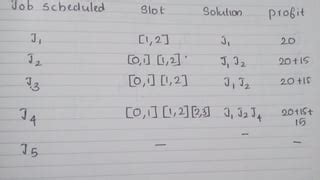 Job scheduled Slot Solution profit
J1 [1,2] J1 20
J2 [0,1] [1,2] J1 J2 20+15
J3 [0,1] [1,2] J1 J2 20+15
J4 [0,1] [1,2] [2,3] J1 J2 J4 20+15+
15
J5 – – –